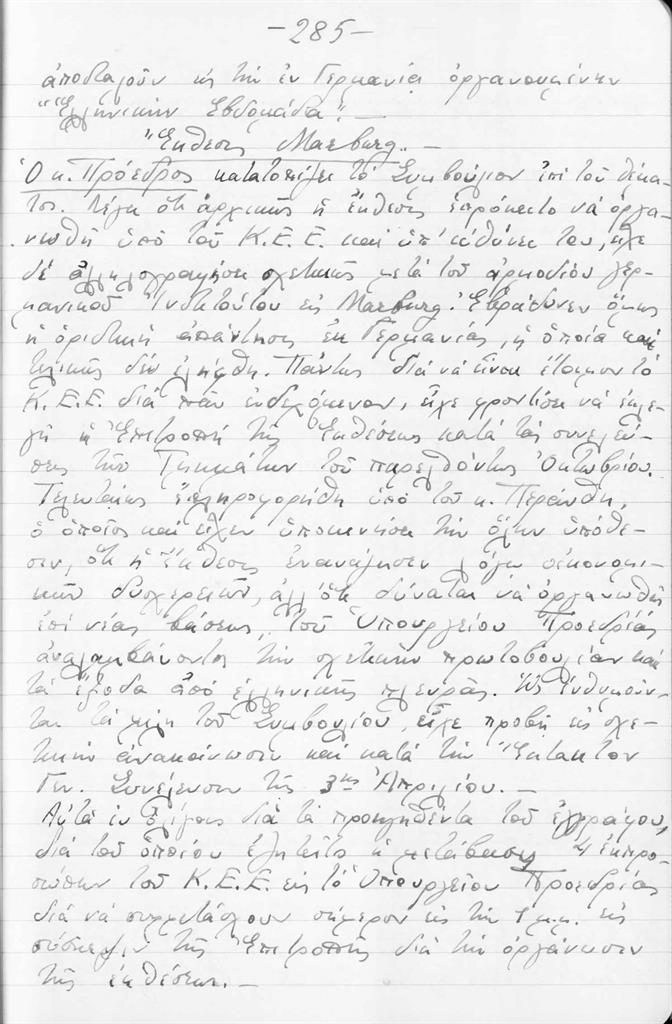 -285-
ἀποσταλοῦν εἰς τὴν ἐν Γερμανίᾳ ὀργανουμένην
"Ἑλληνικὴν Ἑβδομάδα".-
"Ἔκθεσις Marburg.-
Ὁ κ. Πρόεδρος κατατοπίζει τὸ Συμβούλιον ἐπὶ τοῦ θέμα-
τος. Λέγει ὅτι ἀρχικῶς ἡ ἔκθεσις ἐπρόκειτο νὰ ὀργα-
νωθῇ ὑπὸ τοῦ Κ.Ε.Ε. καὶ ὑπ' εὐθύνην του, εἶχε
δὲ ἀλληλογραφήσει σχετικῶς μετὰ τοῦ ἁρμοδίου γερ-
μανικοῦ Ἰνστιτούτου εἰς Marburg. Ἐβράδυνεν ὅμως
ἡ ὁριστικὴ ἀπάντησις ἐκ Γερμανίας, ἡ ὁποία καὶ
τελικῶς δὲν ἐλήφθη. Πάντως διὰ νὰ εἶναι ἕτοιμον τὸ
Κ.Ε.Ε. διὰ πᾶν ἐνδεχόμενον, εἶχε φροντίσει νὰ ἐκλε-
γῇ ἡ Ἐπιτροπὴ τῆς Ἐκθέσεως κατὰ τὰς συνελεύ-
σεις τῶν Τμημάτων τοῦ παρελθόντος Ὀκτωβρίου.
Τελευταίως ἐπληροφορήθη ὑπὸ τοῦ κ. Περάνθη,
ὁ ὁποῖος καὶ εἶχεν ὑποκινήσει τὴν ὅλην ὑπόθε-
σιν, ὅτι ἡ Ἔκθεσις ἐναυάγησεν λόγῳ οἰκονομι-
κῶν δυσχερειῶν, ἀλλ' ὅτι δύναται νὰ ὀργανωθῇ
ἐπὶ νέας βάσεως, τοῦ Ὑπουργείου Προεδρίας
ἀναλαμβάνοντος τὴν σχετικὴν πρωτοβουλίαν καὶ
τὰ ἔξοδα ἀπὸ ἑλληνικῆς πλευρᾶς. Ὡς ἐνθυμοῦν-
ται τὰ μέλη τοῦ Συμβουλίου, εἶχε προβῆ εἰς σχε-
τικὴν ἀνακοίνωσιν καὶ κατὰ τὴν Ἔκτακτον
Γεν. Συνέλευσιν τῆς 3ης Ἀπριλίου.-
Αὐτὰ ἐν ὀλίγοις διὰ τὰ προηγηθέντα τοῦ ἐγγράφου,
διὰ τοῦ ὁποίου ἐζητεῖτο ἡ μετάβασις 4 ἐκπρο-
σώπων τοῦ Κ.Ε.Ε. εἰς τὸ Ὑπουργεῖον Προεδρίας
διὰ νὰ συμμετάσχουν σήμερον εἰς τὴν 1 μ.μ. εἰς
σύσκεψιν τῆς Ἐπιτροπῆς διὰ τὴν ὀργάνωσιν
τῆς ἐκθέσεως.-